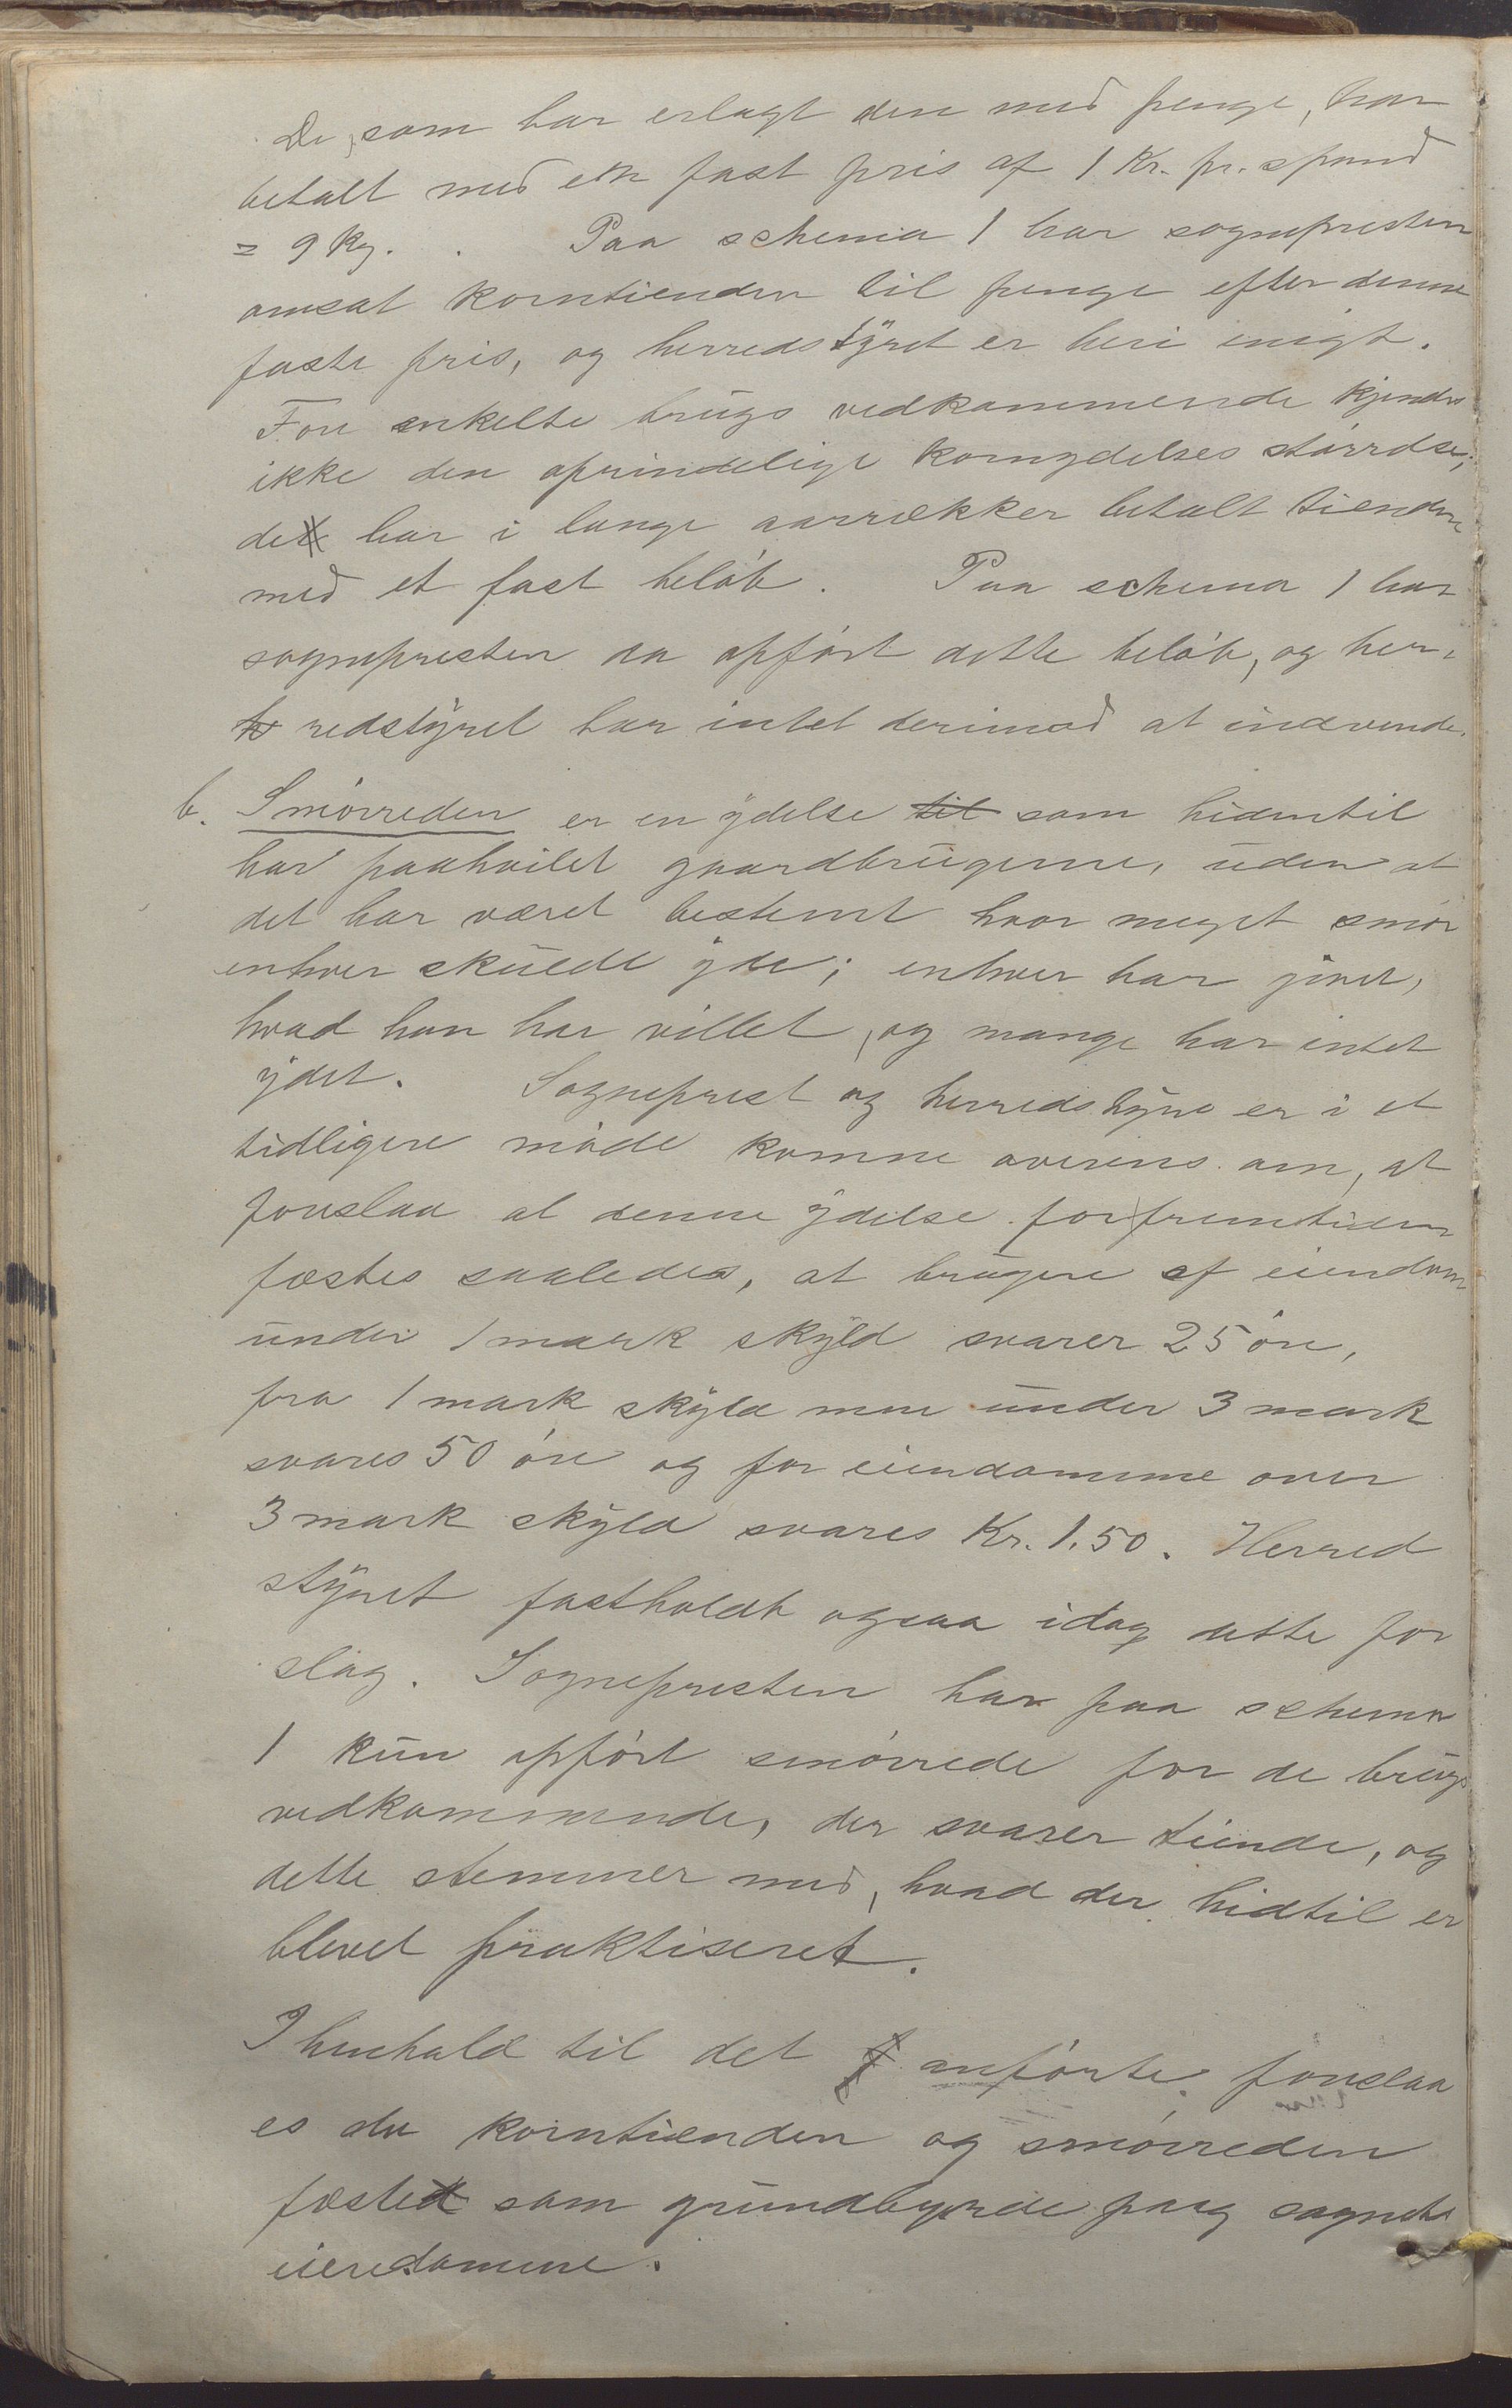 De, som har erlagt den med penge, har
betalt med en fast pris af 1 Kr. pr. spand
= 9 Kg. . Paa schema 1 har sognepresten
omsat korntienden til penge efter denne
faste pris, og herredstyret er heri enigt.
For enkelte brugs vedkommende kjendes
ikke den oprindelige kornydelses størrelse;
det har i lange aarrækker betalt tienden
med et fast beløb. Paa schema 1 har
sognepresten da opført dette beløb, og her-
redstyret har intet derimod at indvende.
b. Smørreden er en ydelse til som hidentil
har paahvilet gaardbrugerne, uden at
det har været bestemt hvor meget smør
enhver skulde yde; enhver har givet,
hvad han har villet, og mange har intet
ydet. Sogneprest og herredstyre er i et
tidligere møde komne overens om, at
foreslaa at denne ydelse for fremtiden
fæstes saaledes, at brugere af eiendom
under 1 mark skyld svarer 25 øre,
fra 1 mark skyld men under 3 mark
svares 50 øre og for eiendomme over
3 mark skyld svares Kr. 1.50. Herred
styret fastholdt ogsaa idag dette for
slag. Sognepresten har paa schema
1 kun opført smørrede for de brugs
vedkommende, der svarer tiende, og
dette stemmer med, hvad der hidtil er
blevet praktiseret.
I henhold til det anførte foreslaa
es da korntienden og smørreden
fæstet som grundbyrde paa sognets
eiendomme.